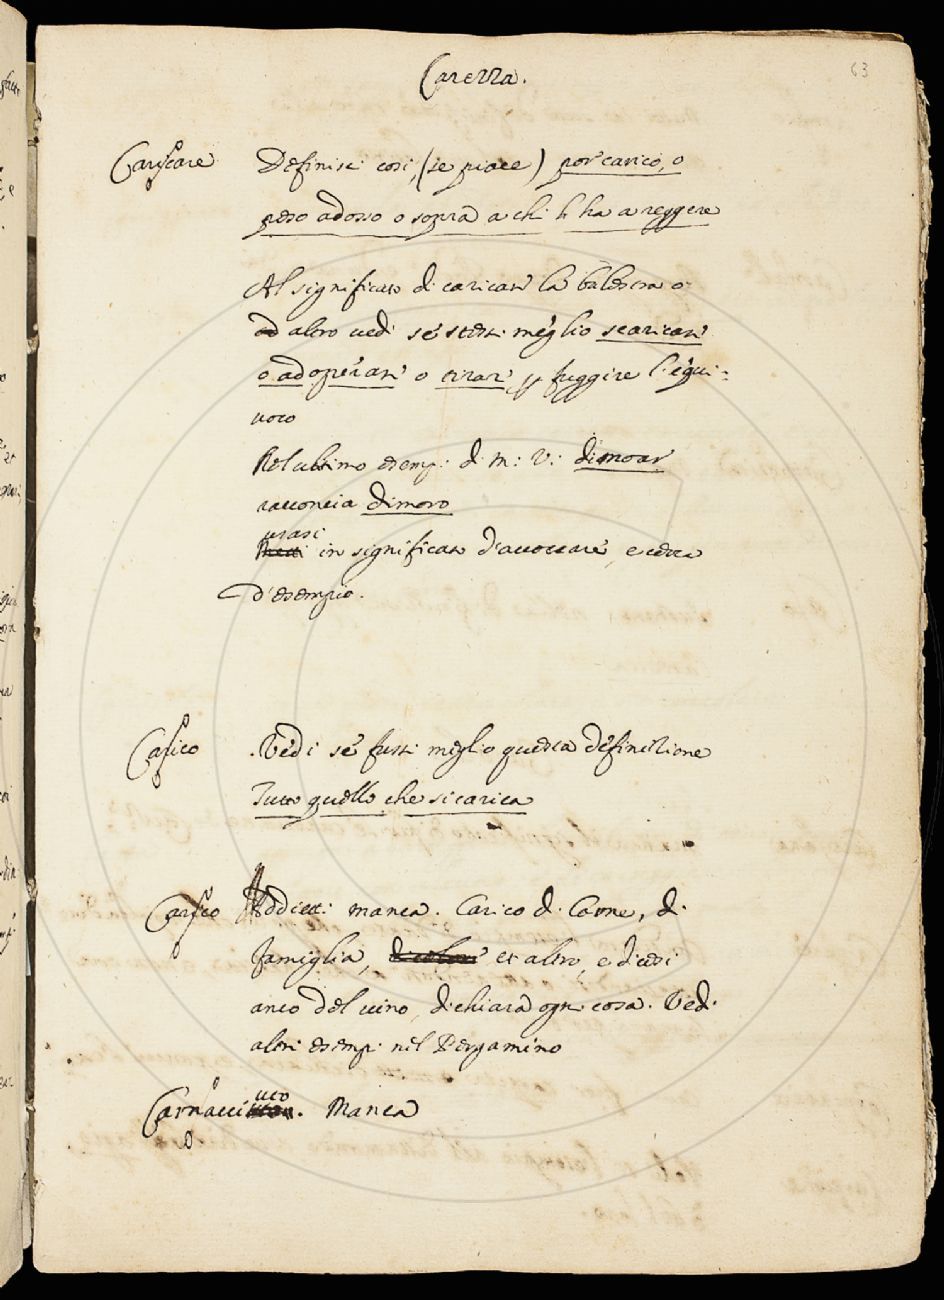 63
Carezza.
Caricare Definisci così, (se piace) por carico, o
peso adosso o sopra a chi l'ha a reggere
Al significato di caricare la balestra o
ad altro vedi se stesti meglio scaricare
o adoperare o tirare p fuggire l'equi-
voco
Nel ultimo esemp: di M: V: dimoar
racconcia dimoro
usasi
in significato d'accoccare, e cerca
d'esempio.
Carico Vedi se fusti meglio questa definizione
Tutto quello che si carica
Carico Addietti: manca. Carico di Carne, di
famiglia, di colori et altro, e dicesi
anco del vino, dichiara ogni cosa. Vedi
altri esempi nel Pergamino
uto
Carnacci. Manca